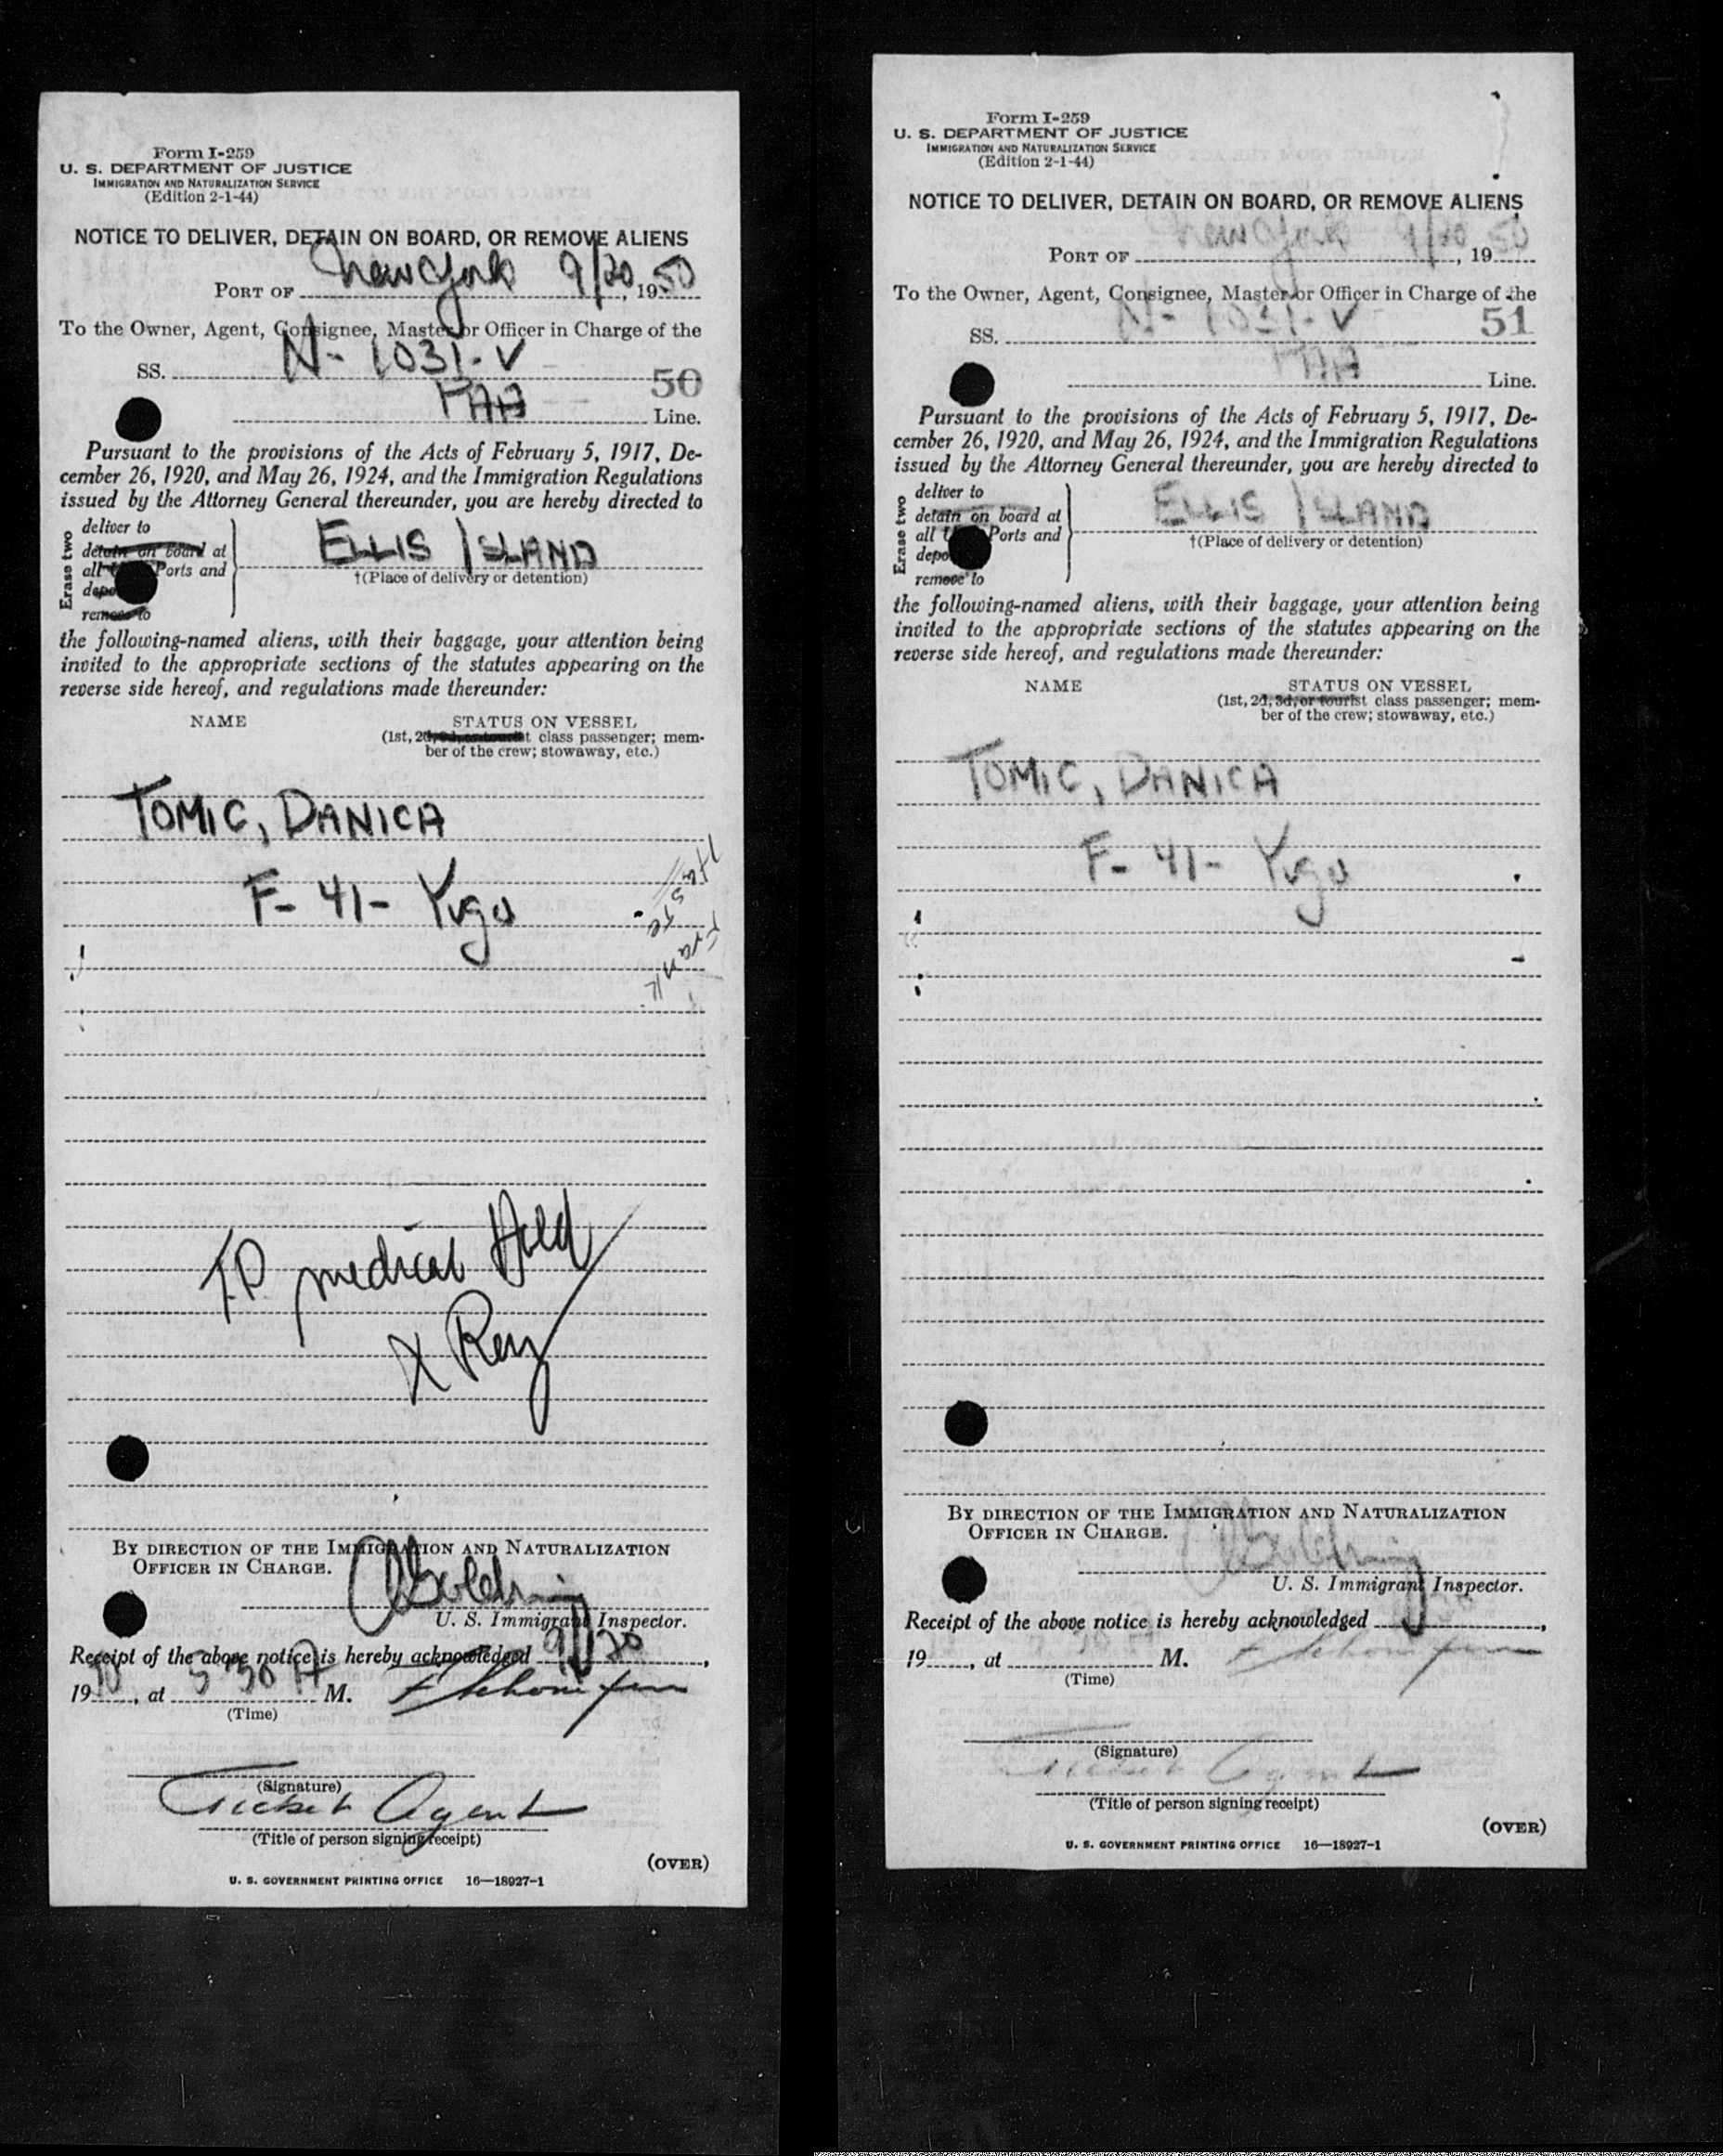 Form I-259
U. S. DEPARTMENT OF JUSTICE
IMMIGRATION AND NATURALIZATION SERVICE
(Edition 2-1-44)
NOTICE TO DELIVER, DETAIN ON BOARD, OR REMOVE ALIENS
PORT OF New York 9/20, 1950
To the Owner, Agent, Consignee, Master or Officer in Charge of the
SS. N-1031-V
50
PAA Line.
Pursuant to the provisions of the Acts of February 5, 1917, De-
cember 26, 1920, and May 26, 1924, and the Immigration Regulations
issued by the Attorney General thereunder, you are hereby directed to
Erase two
deliver to
detain on board at
all Ports and
remove to
ELLIS ISLAND
†(Place of delivery or detention)
the following-named aliens, with their baggage, your attention being
invited to the appropriate sections of the statutes appearing on the
reverse side hereof, and regulations made thereunder:
NAME STATUS ON VESSEL
(1st, 2d, class passenger; mem-
ber of the crew; stowaway, etc.)
TOMIC, DANICA
F- 41- Yugo
Frank
medical Hold
X Ray
BY DIRECTION OF THE IMMIGRATION AND NATURALIZATION
OFFICER IN CHARGE.
U. S. Immigrant Inspector.
Receipt of the above notice is hereby acknowledged 9/20,
19, at 5 30 A M.
(Time)
(Signature)
Ticket Agent
(Title of person signing receipt)
(OVER)
U. S. GOVERNMENT PRINTING OFFICE 16—18927-1
Form I-259
U. S. DEPARTMENT OF JUSTICE
IMMIGRATION AND NATURALIZATION SERVICE
(Edition 2-1-44)
NOTICE TO DELIVER, DETAIN ON BOARD, OR REMOVE ALIENS
PORT OF New York 9/20, 1950
To the Owner, Agent, Consignee, Master or Officer in Charge of the
SS. N-1031-V
51
PAA Line.
Pursuant to the provisions of the Acts of February 5, 1917, De-
cember 26, 1920, and May 26, 1924, and the Immigration Regulations
issued by the Attorney General thereunder, you are hereby directed to
Erase two
deliver to
detain on board at
all Ports and
remove to
ELLIS ISLAND
†(Place of delivery or detention)
the following-named aliens, with their baggage, your attention being
invited to the appropriate sections of the statutes appearing on the
reverse side hereof, and regulations made thereunder:
NAME STATUS ON VESSEL
(1st, 2d, 3d, or tourist class passenger; mem-
ber of the crew; stowaway, etc.)
TOMIC, DANICA
F- 41- Yugo
BY DIRECTION OF THE IMMIGRATION AND NATURALIZATION
OFFICER IN CHARGE.
U. S. Immigrant Inspector.
Receipt of the above notice is hereby acknowledged ,
19, at M.
(Time)
(Signature)
Ticket Agent
(Title of person signing receipt)
(OVER)
U. S. GOVERNMENT PRINTING OFFICE 16—18927-1